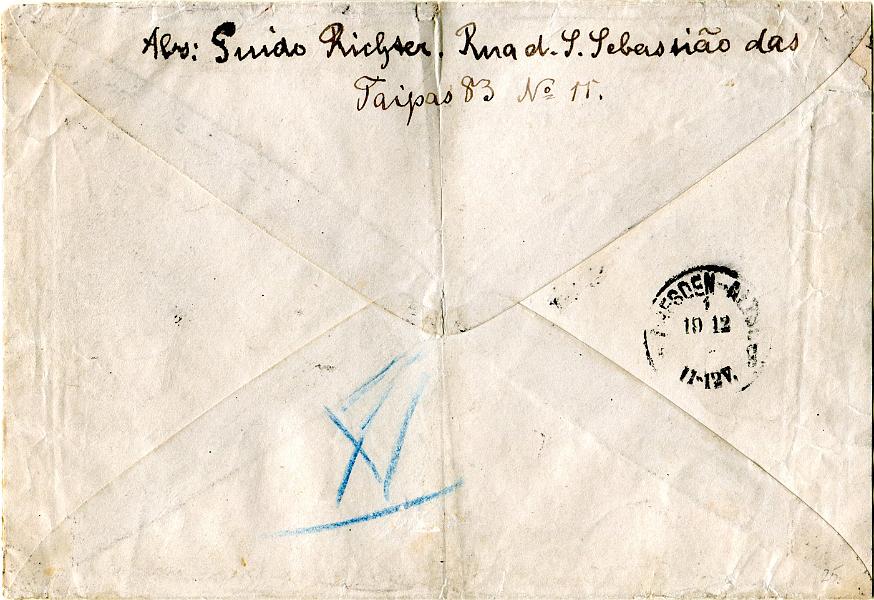 Abs: Guido Richter. Rua d. S. Sebastião das
Taipas 83 Nº 11.
DRESDEN-ALTST.
1
19 12
11-12V.
XV
25.